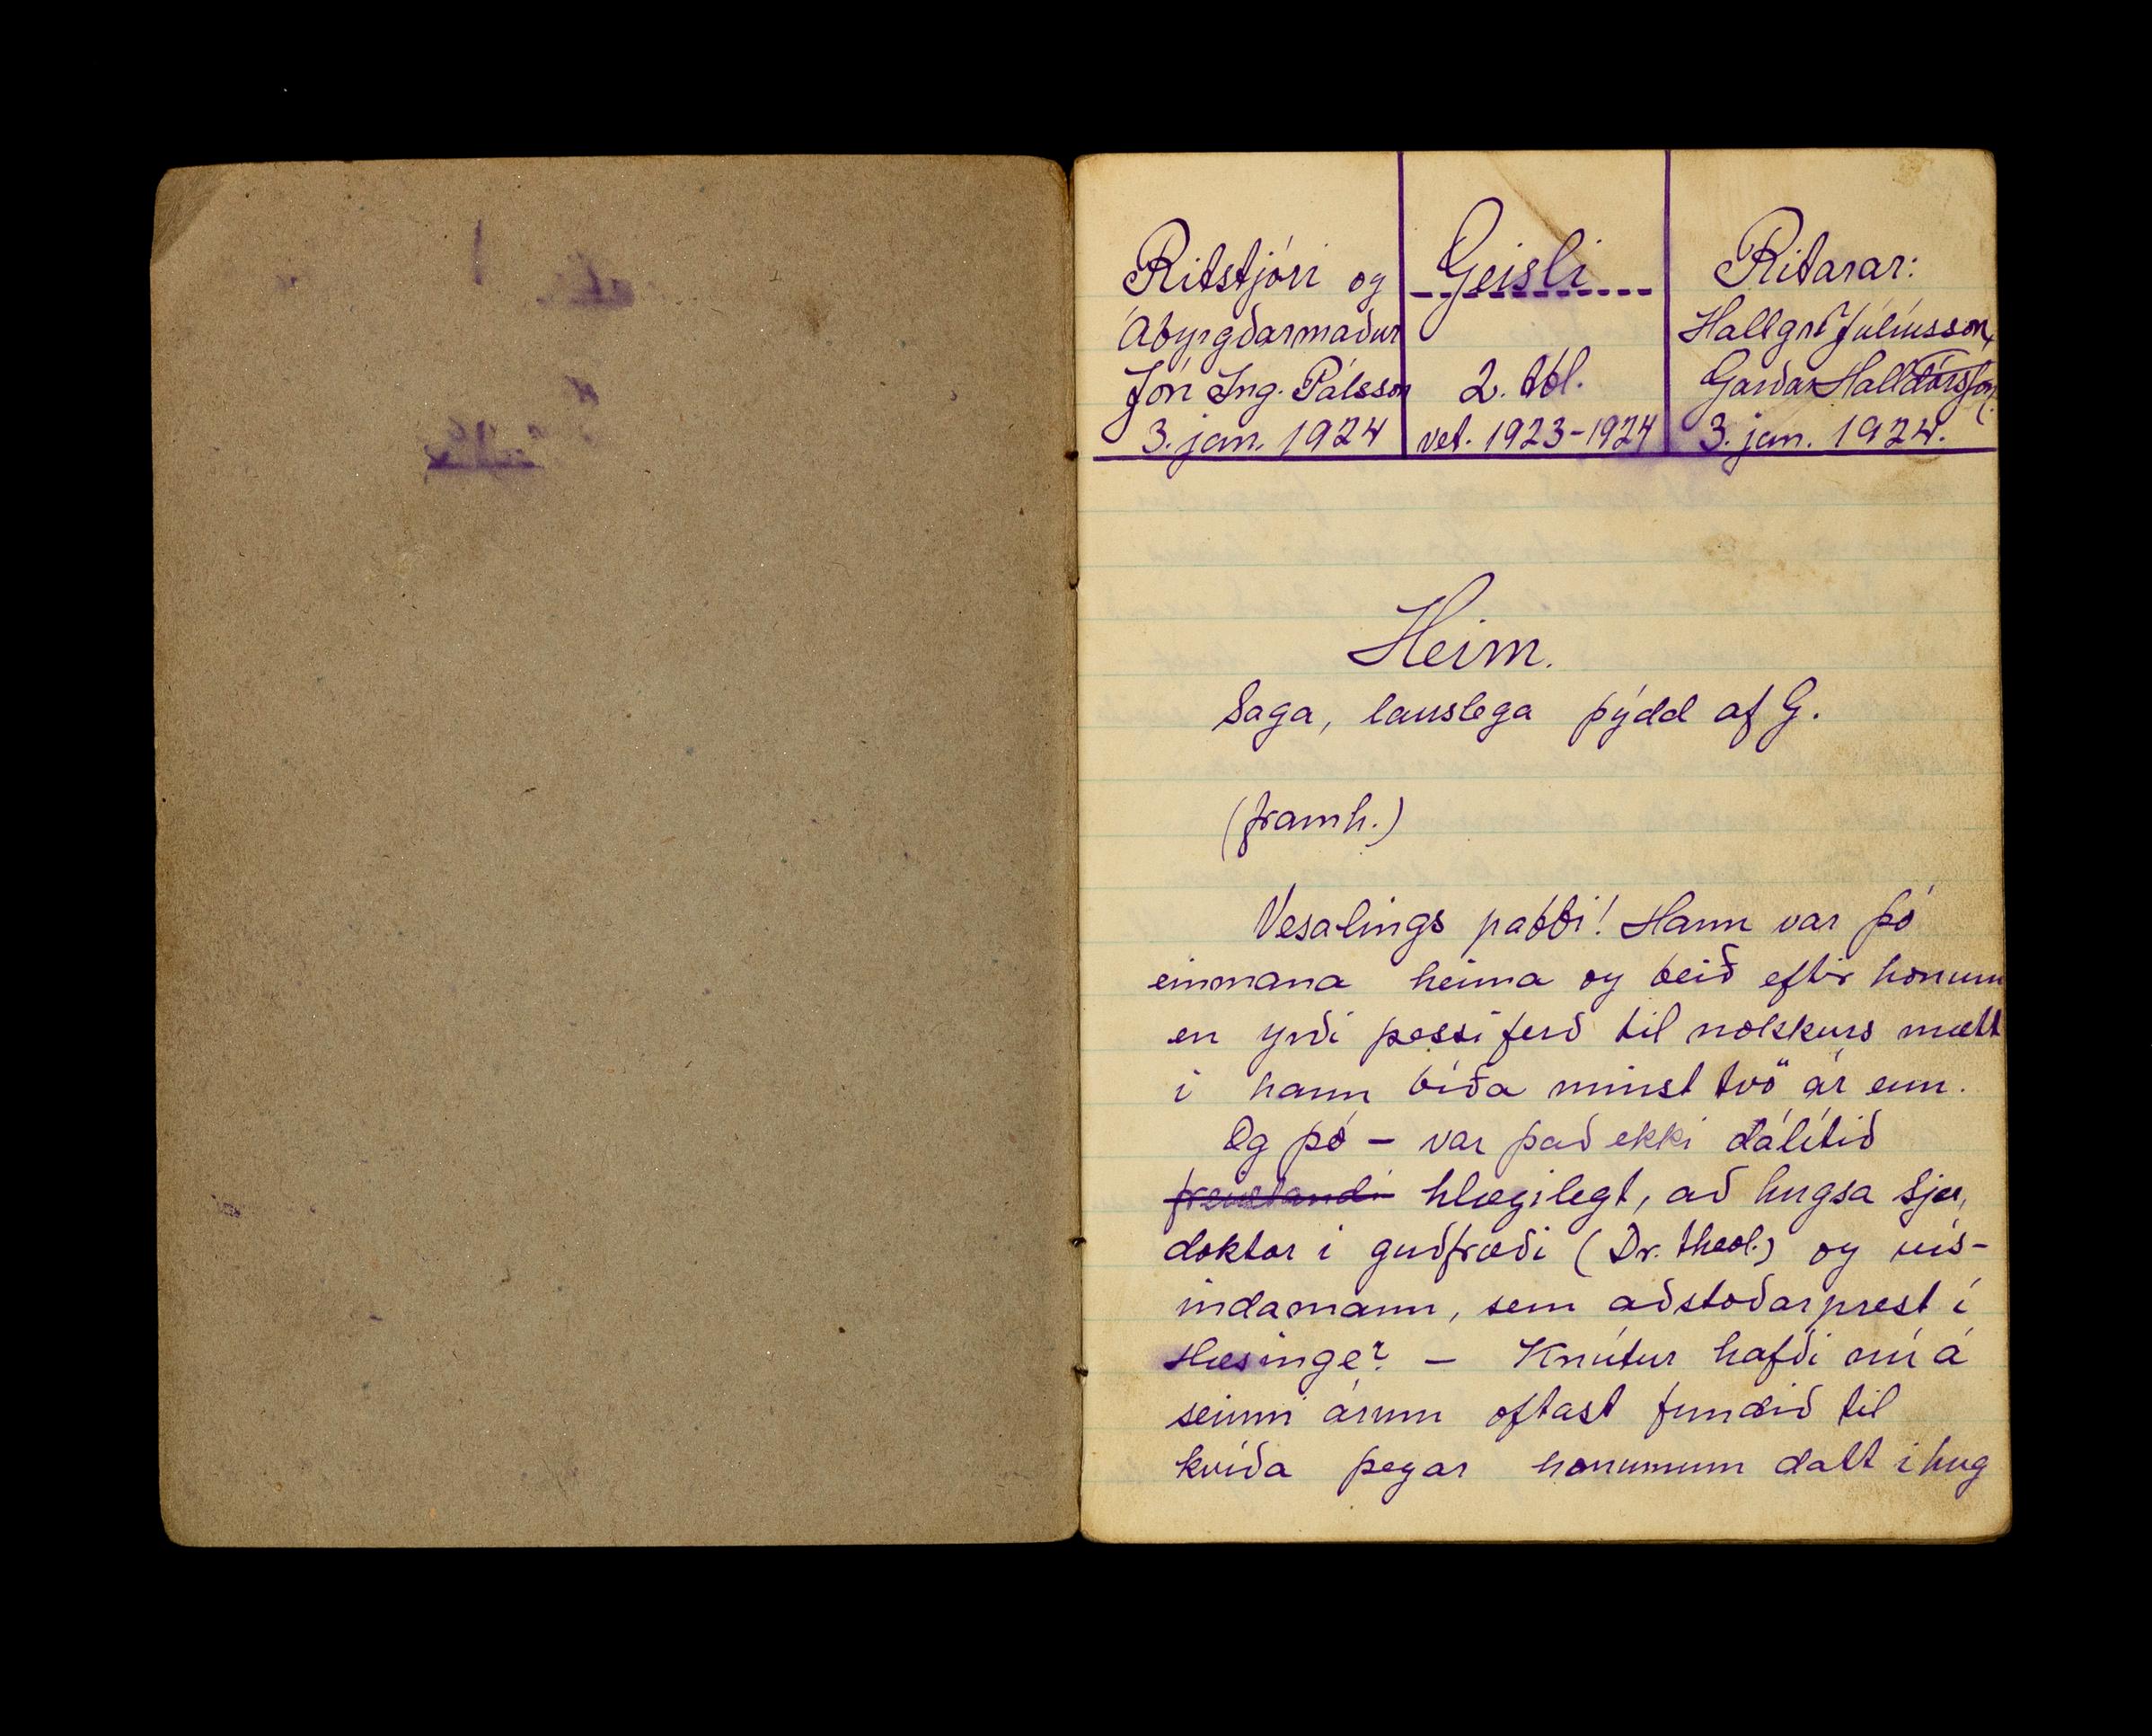 Ritstjóri og
Ábyrgðarmaður
Jón Ing. Pálsson
3. jan. 1924
Geisli
2. tbl.
vet. 1923-1924
Ritarar:
Hallgr. Júlíusson,
Garðar Halldórsson.
3. jan. 1924.
Heim.
Saga, lauslega þýdd af G.
(framh.)
Vesalings pabbi! Hann var þó
einmana heima og beið eftir honum
en yrði þessi ferð til nokkurs mætt
i hann bíða minst tvö ár enn.
Og þó – var það ekki dálítið
freistandi hlægilegt, að hugsa sjer,
doktor i guðfræði (Dr. theol.) og vís-
indamann, sem aðstoðarprest í
Hæsinge? – Knútur hafði nú á
seinni árum oftast fundið til
kvíða þegar honumum datt i hug